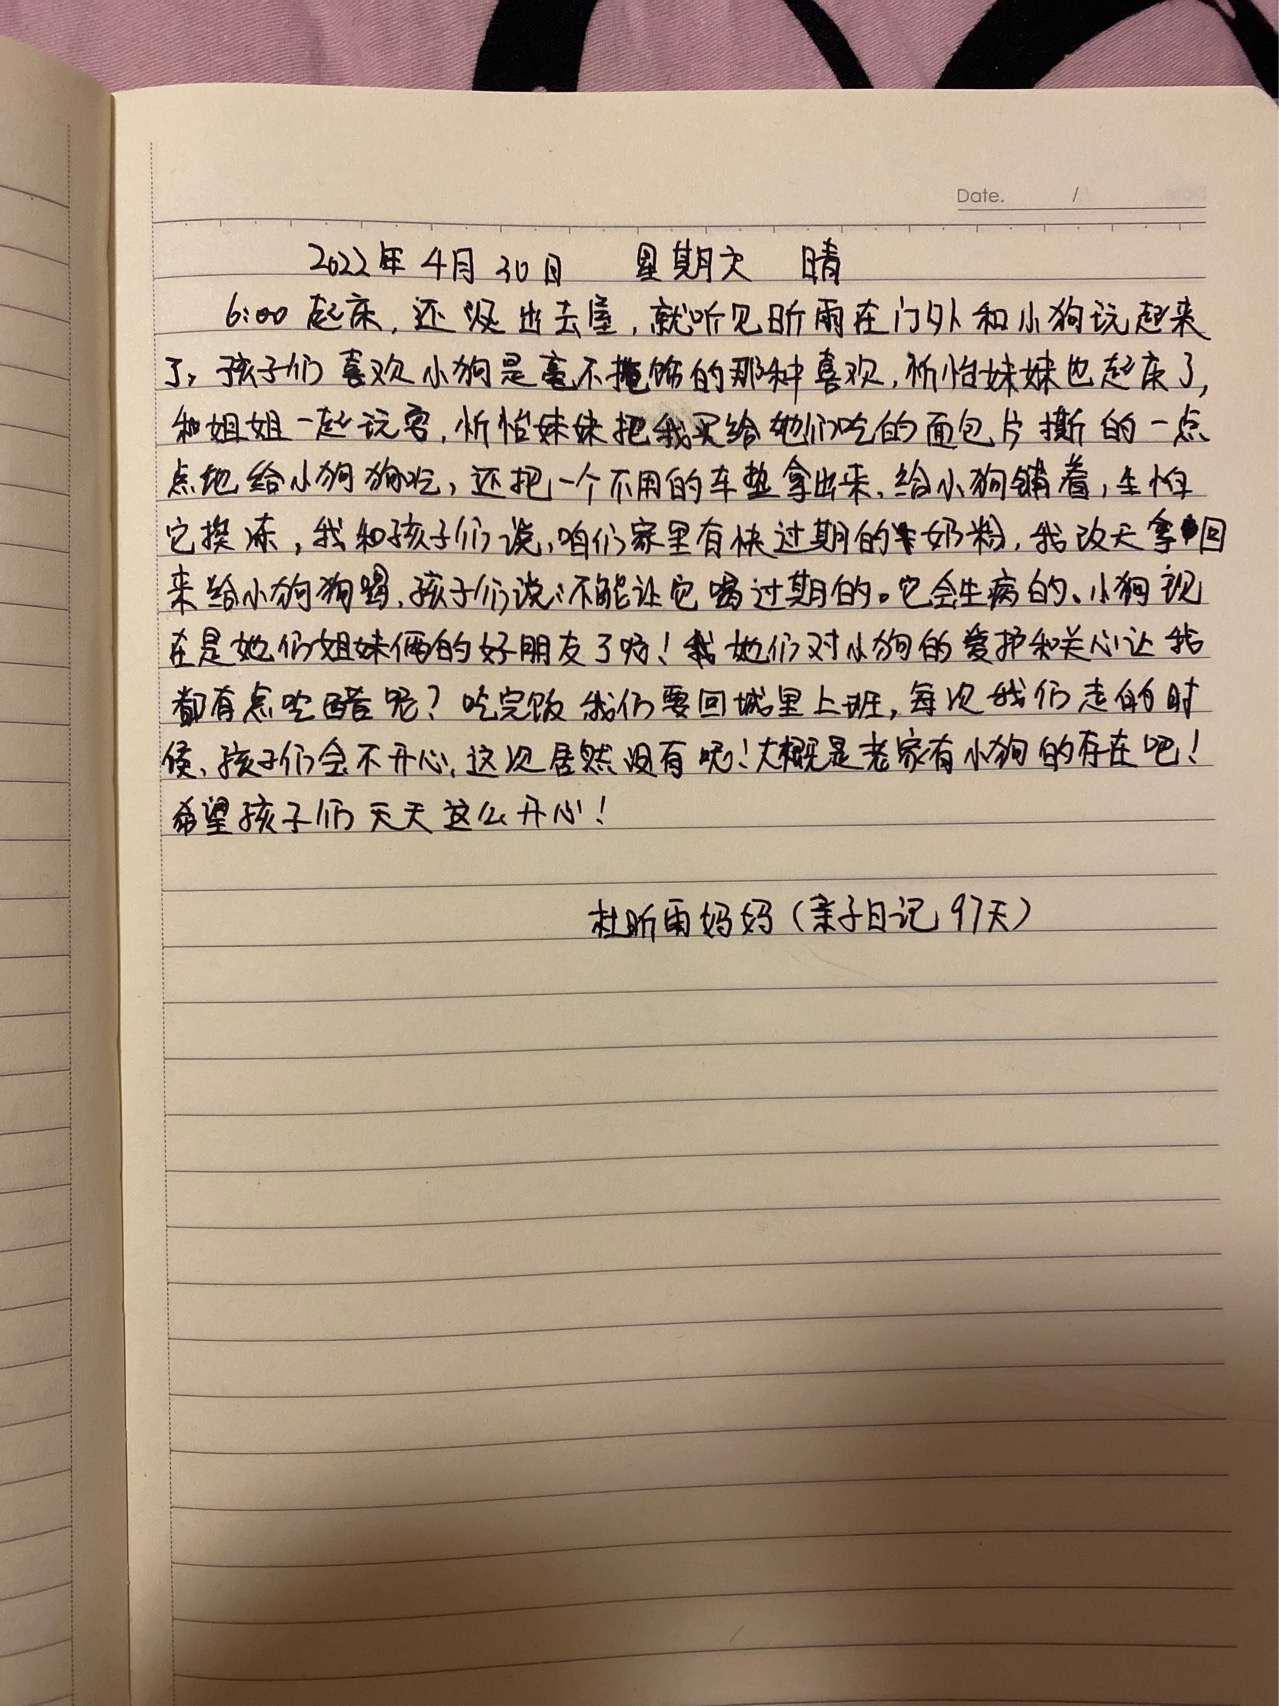 Date. /
2022年4月30日 星期六 晴
6:00起床,还没出去屋,就听见昕雨在门外和小狗玩起来
了,孩子们喜欢小狗是毫不掩饰的那种喜欢,忻怡妹妹也起床了,
和姐姐一起玩耍,忻怡妹妹把我买给她们吃的面包片撕的一点
点地给小狗狗吃,还把一个不用的车垫拿出来,给小狗铺着,生怕
它挨冻,我和孩子们说,咱们家里有快过期的奶粉,我改天拿回
来给小狗狗喝,孩子们说:不能让它喝过期的。它会生病的、小狗现
在是她们姐妹俩的好朋友了呀!她们对小狗的爱护和关心让我
都有点吃醋呢?吃完饭我们要回城里上班,每次我们走的时
候、孩子们会不开心,这次居然没有呢!大概是老家有小狗的存在吧!
希望孩子们天天这么开心!
杜昕雨妈妈(亲子日记97天)